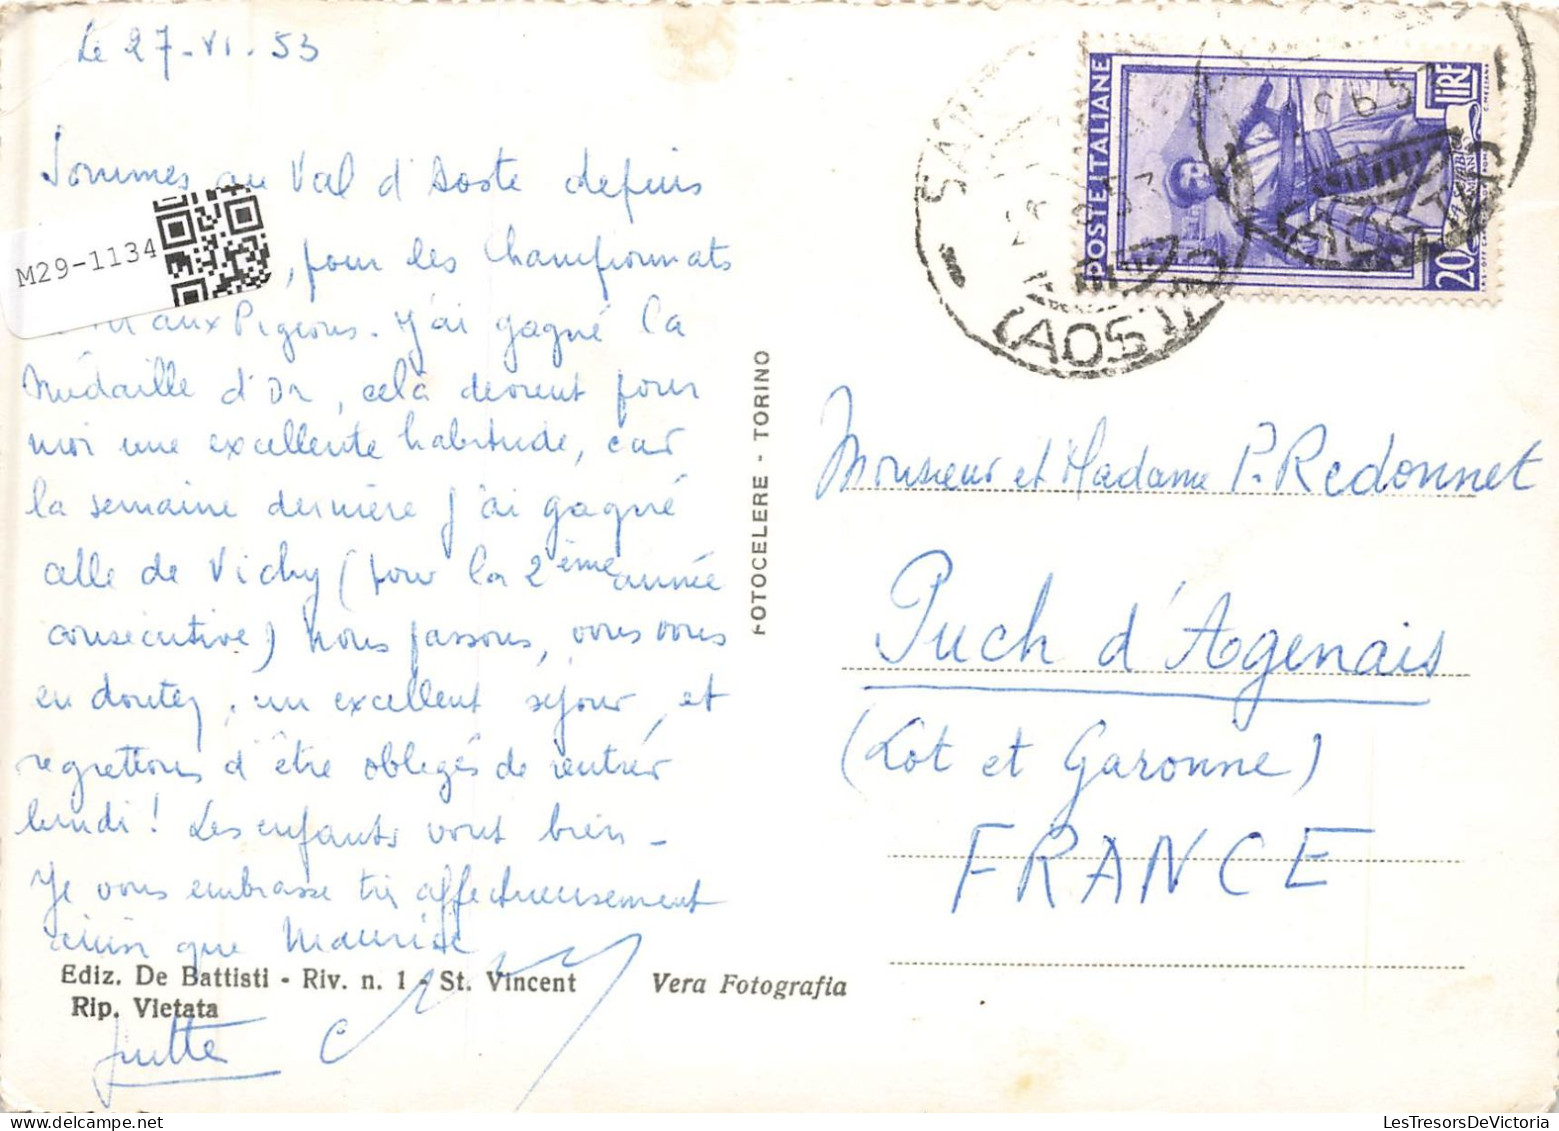 Le 27-VI-53
Sommes au Val d'Aoste depuis
, pour les Championnats
aux Pigeons. J'ai gagné la
Médaille d'Or, celà devient pour
moi une excellente habitude, car
la semaine dernière j'ai gagné
celle de Vichy (pour la 2ème année
consécutive) nous passons, vous vous
en doutez, un excellent séjour, et
regrettons d'être obligés de rentrer
lundi! Les enfants vont bien -
Je vous embrasse très affectueusement
ainsi que Maurice
M29-1134
Ediz. De Battisti - Riv. n. 1 - St. Vincent
Vera Fotografia
Rip. Vietata
FOTOCELERE - TORINO
POSTE ITALIANE
20 LIRE
C. MEZZANA
(AOSTA)
(AOSTA)
Monsieur et Madame P. Redonnet
Puch d'Agenais
(Lot et Garonne)
FRANCE
LesTresorsDeVictoria